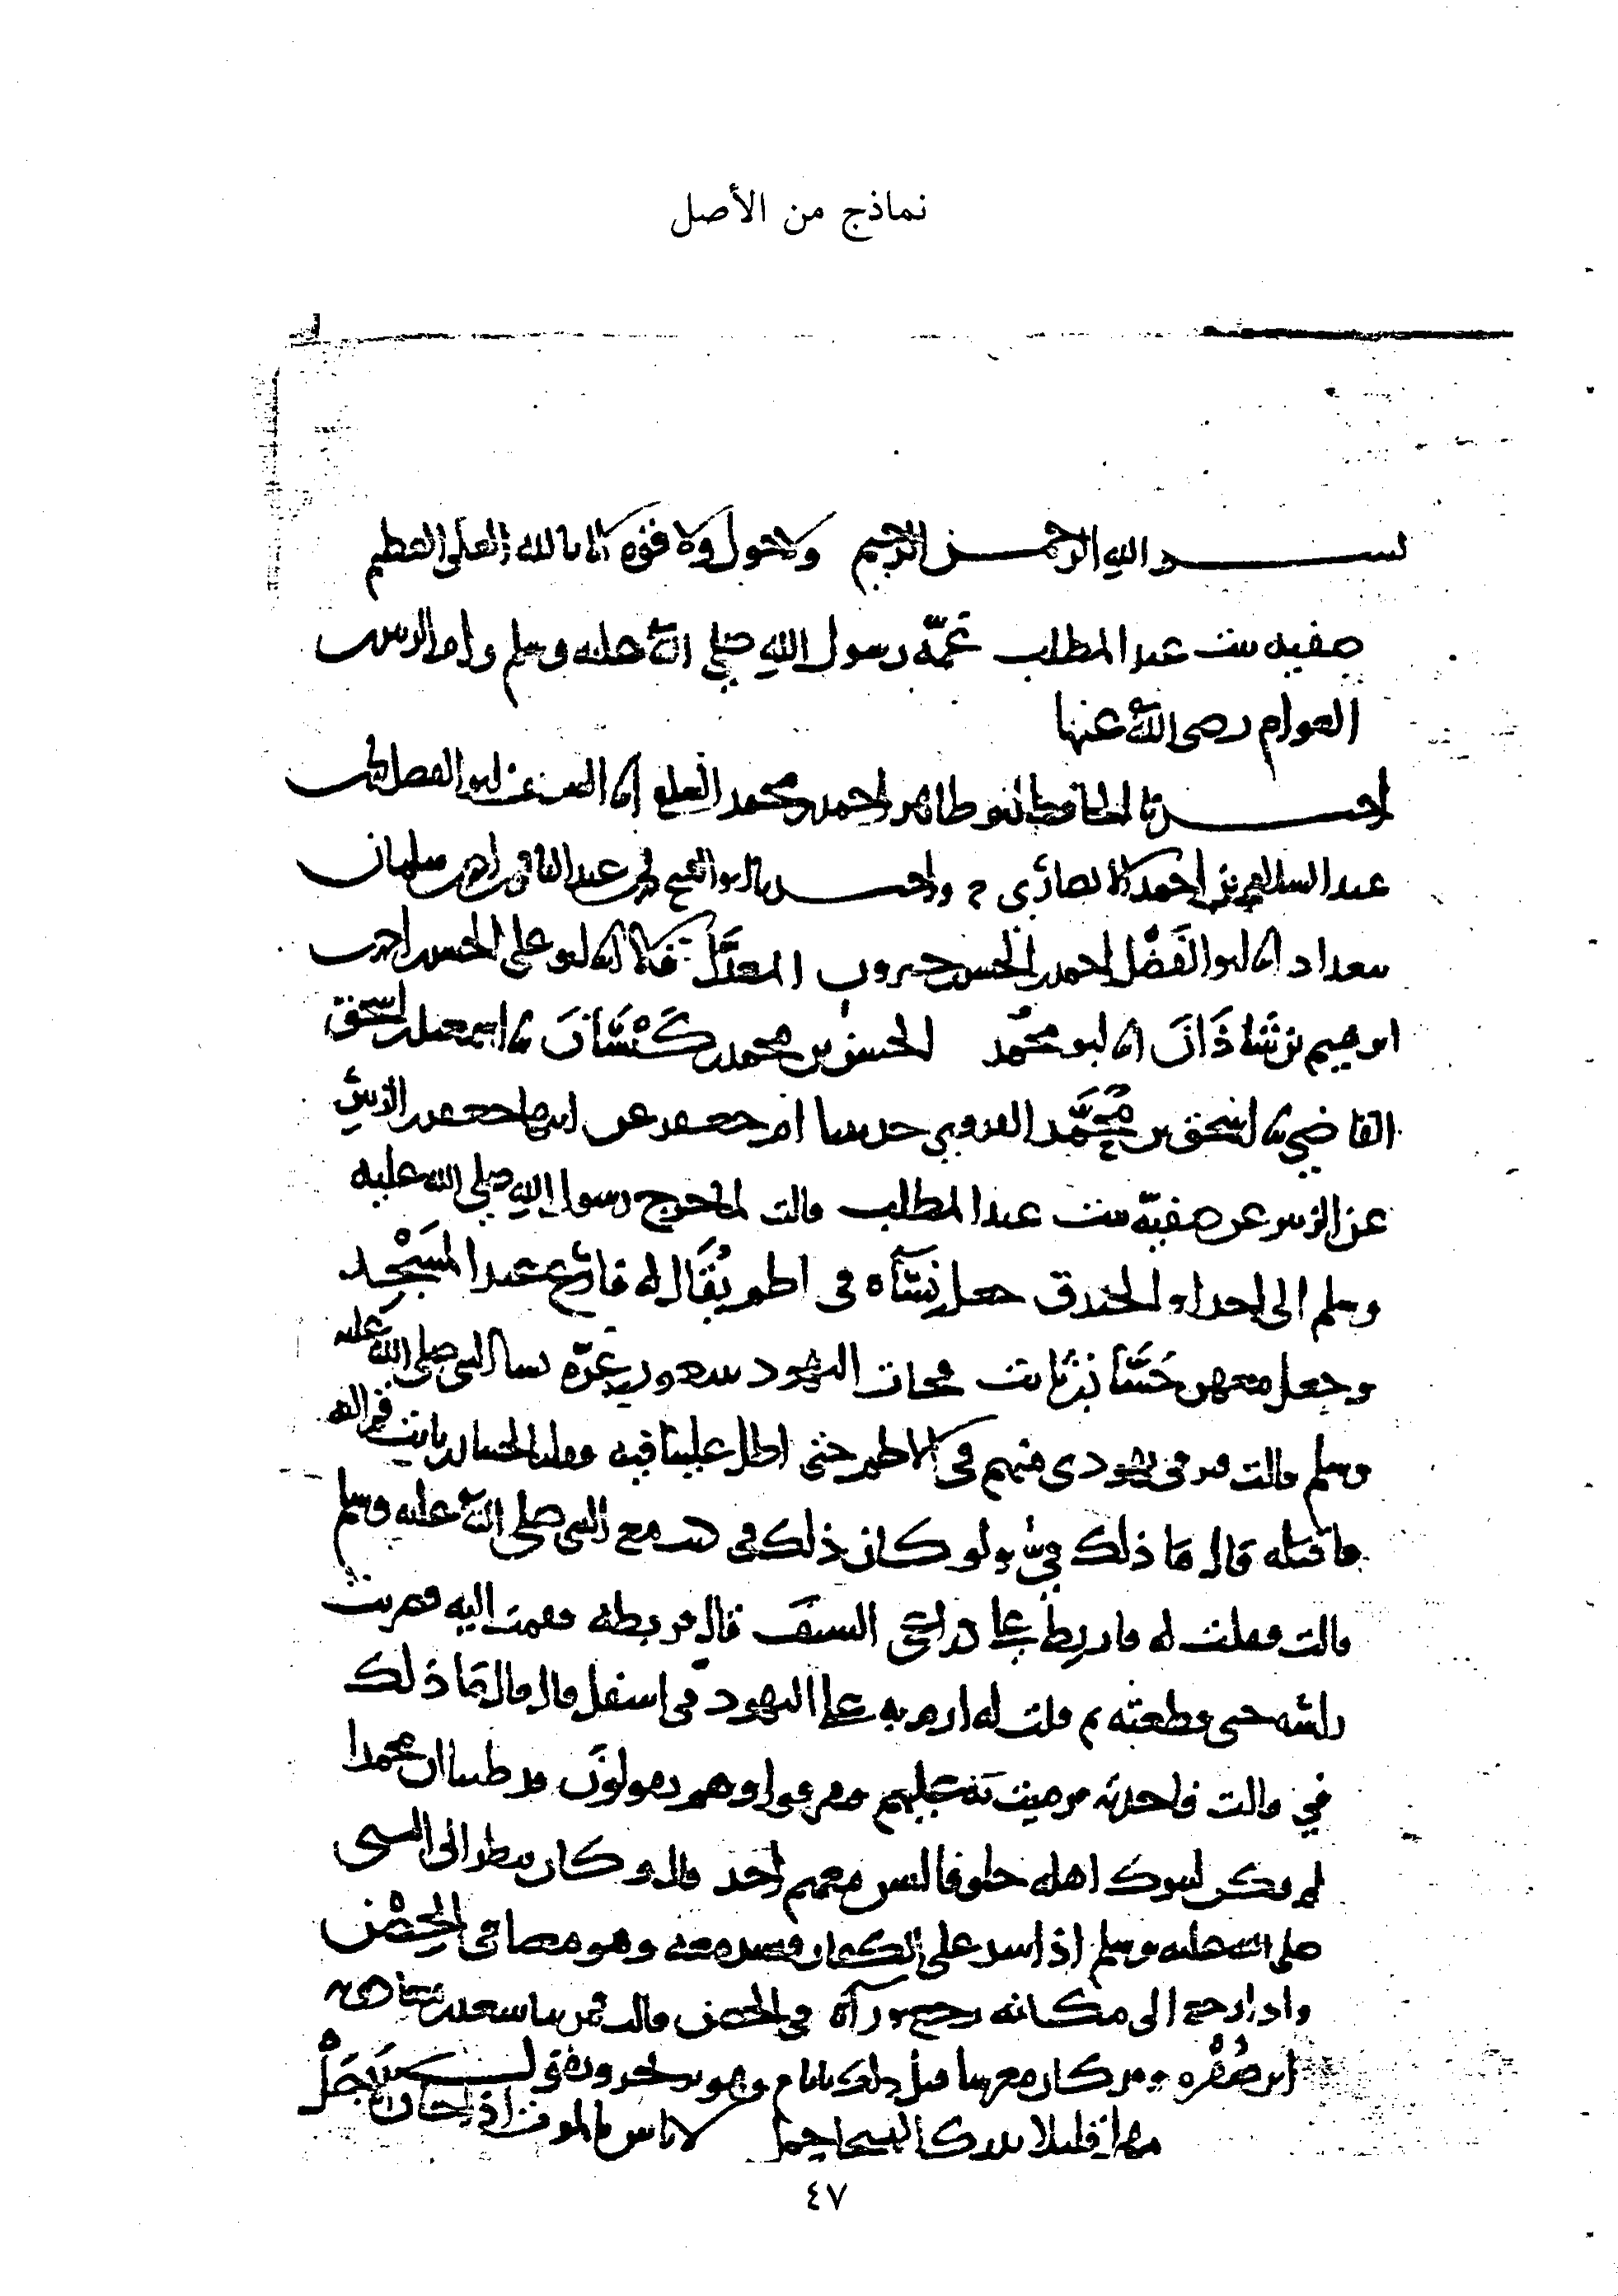 نماذج من الأصل
بسم الله الرحمن الرحيم ولا حول ولا قوة الا بالله العلي العظيم
صفيه بنت عبد المطلب عمّة رسول الله صلي الله عليه وسلم وام الزبير بن
العوام رضى الله عنها
اخبرنا الحافظ ابو طاهر احمد بن محمد السلفى انا الشريف ابو الفضل محمد بن
عبد السلام بن احمد الانصاري ح واخبرنا ابو الفتح محمد بن عبد الباقي بن احمد بن سلمان
ببغداد انا ابو الفَضْل احمد بن الحسن بن خيرون المعدَّل قالا انا ابو على الحسن بن احمد بن
ابرهيم بن شَاذَانَ انا ابو محمّد الحسن بن محمد بن كَيْسَانَ نا اسمعيل بن اسحق
القاضي نا اسحق بن مُحَمَّد الفروي حدثتنا ام جعفر عن ابيها جعفر بن الزبير
عن الزبير عن صفيّة بنت عبد المطلب قالت لما خرج رسول الله صلي الله عليه
وسلم الى احد او الخندق جعل نِسَآه فى اطم يُقَال له فارع عند المَسْجِد
وجعل معهن حَسَّان بن ثابت فجات اليهود غرّه نسا النبى صلى الله عليه
وسلم قالت فرقى يهودى منهم فى الاطم حتى اطل علينا فيه فقلنا لحسان بن ثابت قم اليه
فاقتله قال ما ذلك فيّ ولو كان ذلك فى لكنت مع النبى صلى الله عليه وسلم
قالت فقلت له فاربط على ذراعى السيف قال فربطه فقمت اليه فضربت
راسه حتى قطعته ثم قلت له ارم به على اليهود فى اسفل قال فقال مَا ذلك
في قالت فاخذته فرميت به عليهم فتفرقوا وهم يقولون قد ظننا ان محمدا
لم يكن ليترك اهله خلوفا ليس معهم احد قال وكان ينظر الى النبى
صلى الله عليه وسلم اذا شد على الكفار فيشد معه وهو معنا فى الحِصْن
واذا رجع الى مكانه رجع ورآه في الحصن قالت فمر بنا سعد بن معاذ وبه
اثر صُفْره وقد كان معرسا قبل ذلك بايام وهو يرتجز ويقول
مهلا قليلا يدرك الهيجا حمل لا باس بالموت اذا حان الاَجَلْ
٤٧